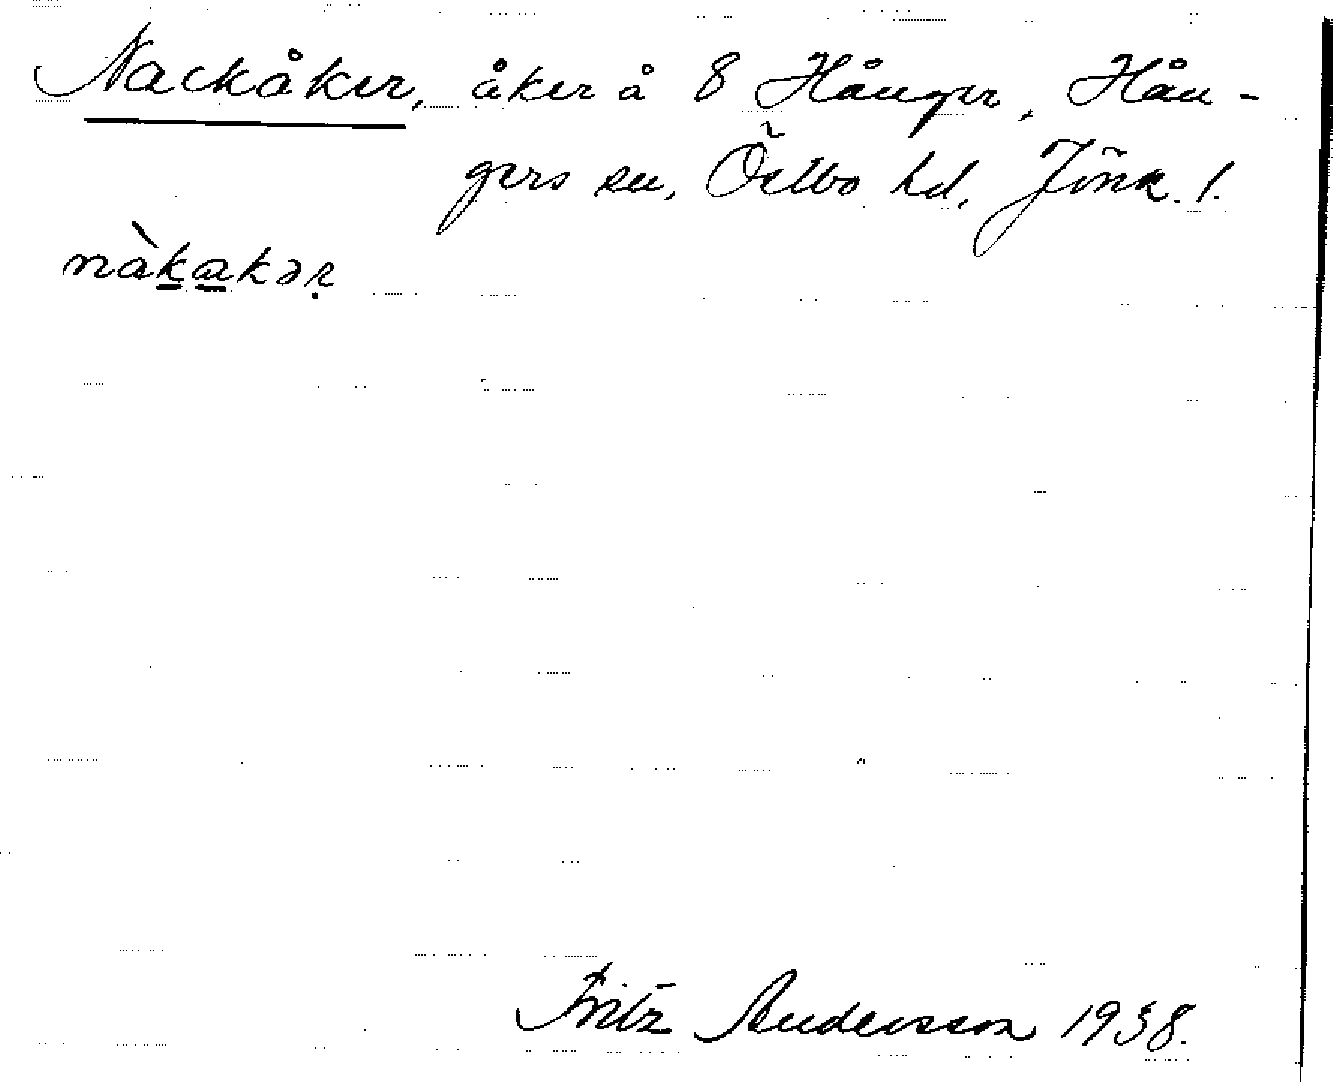 Nackåker, åker å 8 Hånger, Hån-
gers sn, Östbo hd, Jönk. l.
nàkakər
Fritz Andersson 1938.